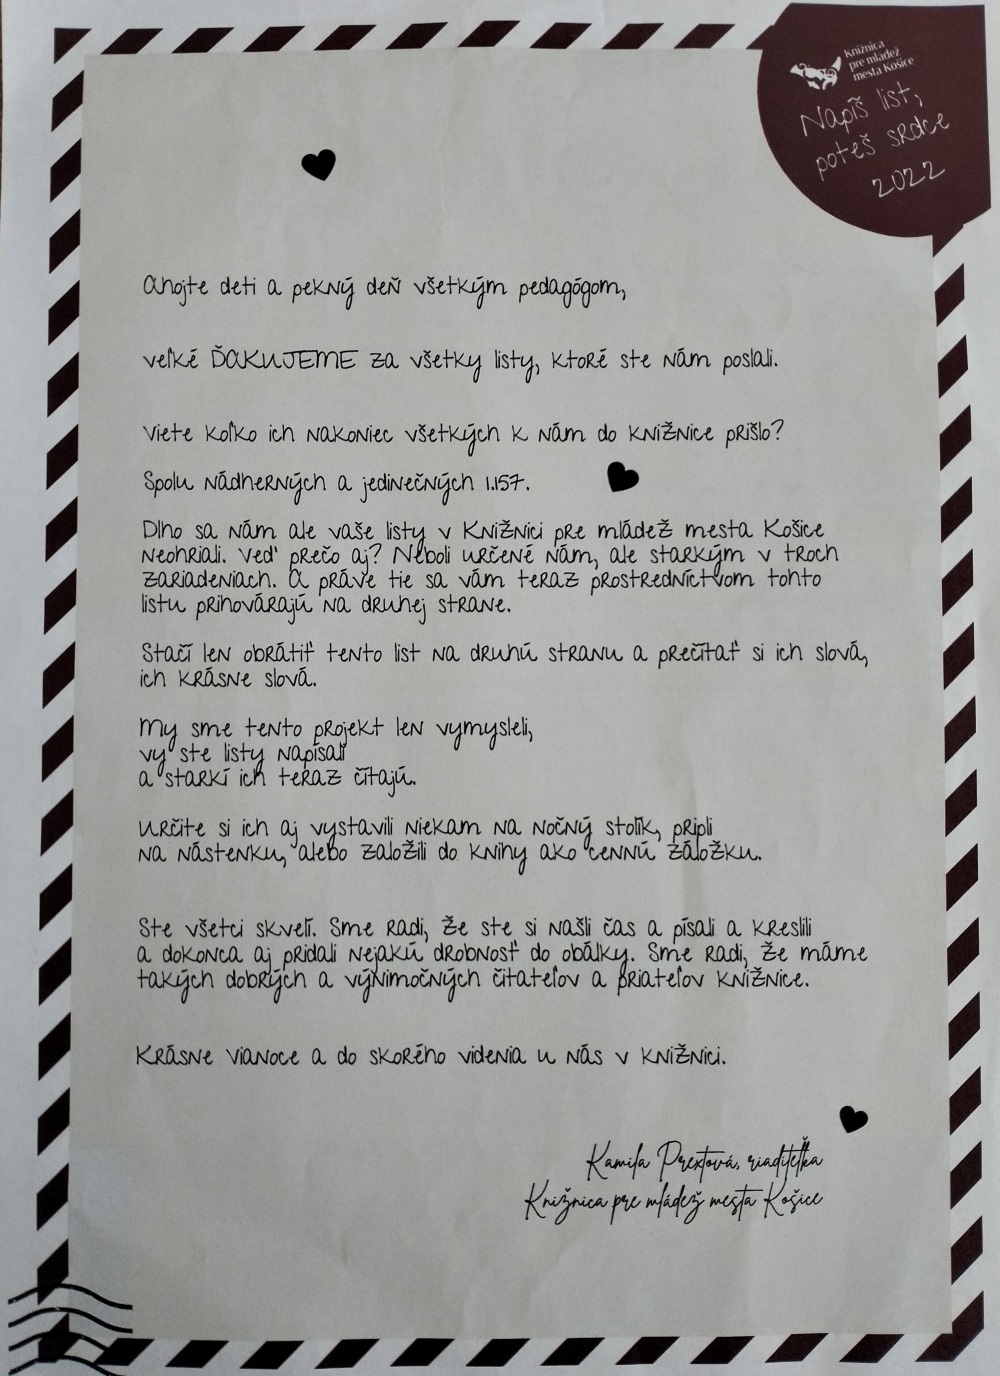 Knižnica
pre mládež
mesta Košice
Napíš list,
poteš srdce
2022
Ahojte deti a pekný deň všetkým pedagógom,
veľké ĎAKUJEME za všetky listy, ktoré ste nám poslali.
Viete koľko ich nakoniec všetkých k nám do knižnice prišlo?
Spolu nádherných a jedinečných 1.157.
Dlho sa nám ale vaše listy v Knižnici pre mládež mesta Košice
neohriali. Veď prečo aj? Neboli určené nám, ale starkým v troch
zariadeniach. A práve tie sa vám teraz prostredníctvom tohto
listu prihovárajú na druhej strane.
Stačí len obrátiť tento list na druhú stranu a prečítať si ich slová,
ich krásne slová.
My sme tento projekt len vymysleli,
vy ste listy napísali
a starkí ich teraz čítajú.
Určite si ich aj vystavili niekam na nočný stolík, pripli
na nástenku, alebo založili do knihy ako cennú záložku.
Ste všetci skvelí. Sme radi, že ste si našli čas a písali a kreslili
a dokonca aj pridali nejakú drobnosť do obálky. Sme radi, že máme
takých dobrých a výnimočných čitateľov a priateľov knižnice.
Krásne vianoce a do skorého videnia u nás v knižnici.
Kamila Prextová, riaditeľka
Knižnica pre mládež mesta Košice